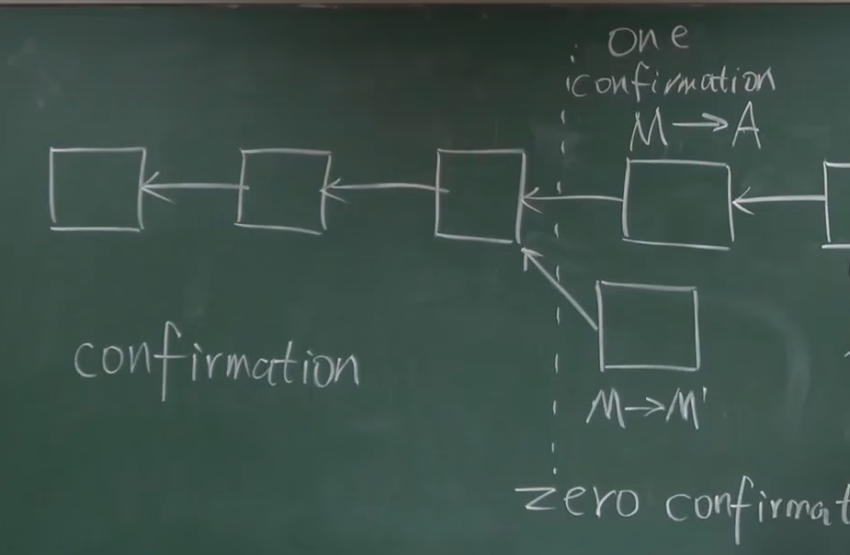 one
confirmation
M→A
confirmation
M→M'
zero confirmat